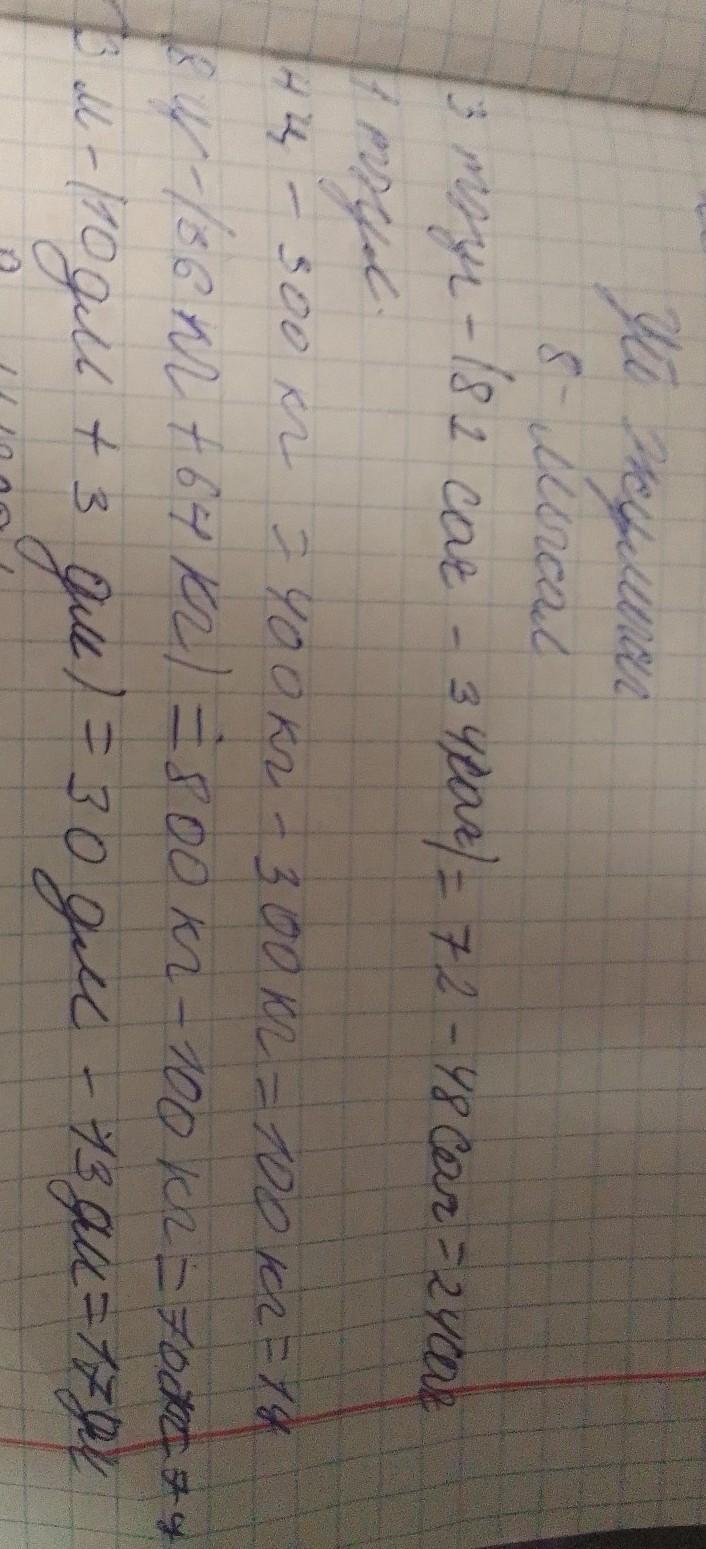 Үй жұмысы
8 - Мысал
3 тәул - (82 сағ - 34 сағ) = 72 - 48 сағ = 24 сағ
1 тәул.
4 ц - 300 кг = 400 кг - 300 кг = 100 кг = 1 ц
8 ц - (36 кг + 64 кг) = 800 кг - 100 кг = 700 кг = 7 ц
3 м - (10 дм + 3 дм) = 30 дм - 13 дм = 17 дм